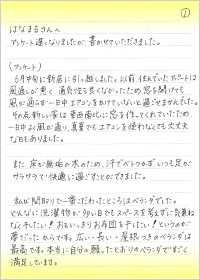 ①
はなまるさんへ
アンケート遅くなりましたが、書かせていただきました。
(アンケート)
6月中旬に新居に引っ越しました。以前、住んでいたアパートは
風通しが悪く、通気性も良くなかったため窓を開けても
風が通らず一日中エアコンをかけていないと過ごせませんでした。
その点新しい家は東西南北に窓を作ってくれていたため、
一日中よく風が通り、真夏でもエアコンを使わなくても大丈夫
な日もありました。
また、床が無垢の木のため、汗でベトつかず、いつも足が
サラサラで快適に過ごすことができました。
私が間取りで一番こだわったところはベランダでした。
どんなに洗濯物が多い日でもスペースを考えずに気兼ね
なく干したい!おもいっきりお布団を干したい!というのが
夢だったからです。広い・長い・屋根つきのベランダは
最高です。本当に自分の願ったとおりのベランダですごく
満足しています。